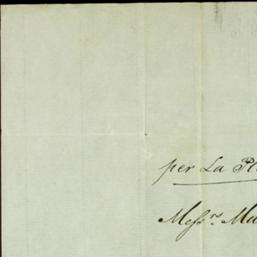 per La Pl
Messrs. Ma